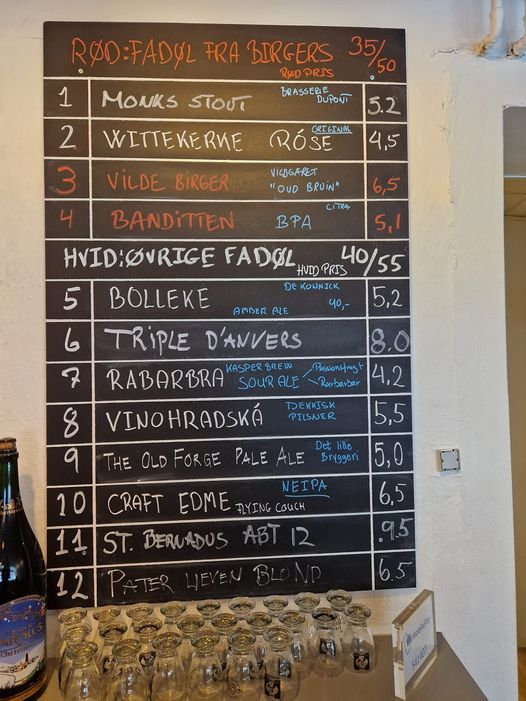 RØD:FADØL FRA BIRGERS 35/50
RØD PRIS
1 MONKS STOUT BRASSERIE DUPONT 5.2
2 WITTEKERKE RÓSE ORIGINAL 4,5
3 VILDE BIRGER VILDGÆRET "OUD BRUIN" 6,5
4 BANDITTEN BPA CITRA 5,1
HVID:ØVRIGE FADØL HVID PRIS 40/55
5 BOLLEKE DE KONNICK AMBER ALE 40,- 5,2
6 TRIPLE D'ANVERS 8.0
7 RABARBRA KASPER BREW SOUR ALE Passionsfrugt Raabarbar 4,2
8 VINOHRADSKÁ TJEKKISK PILSNER 5,5
9 THE OLD FORGE PALE ALE Det lille Bryggeri 5,0
10 CRAFT EDME NEIPA FLYING COUCH 6,5
11. ST. BERNADUS ABT 12 .9.5
12 PATER LIEVEN BLOND 6.5
MobilePay
541407